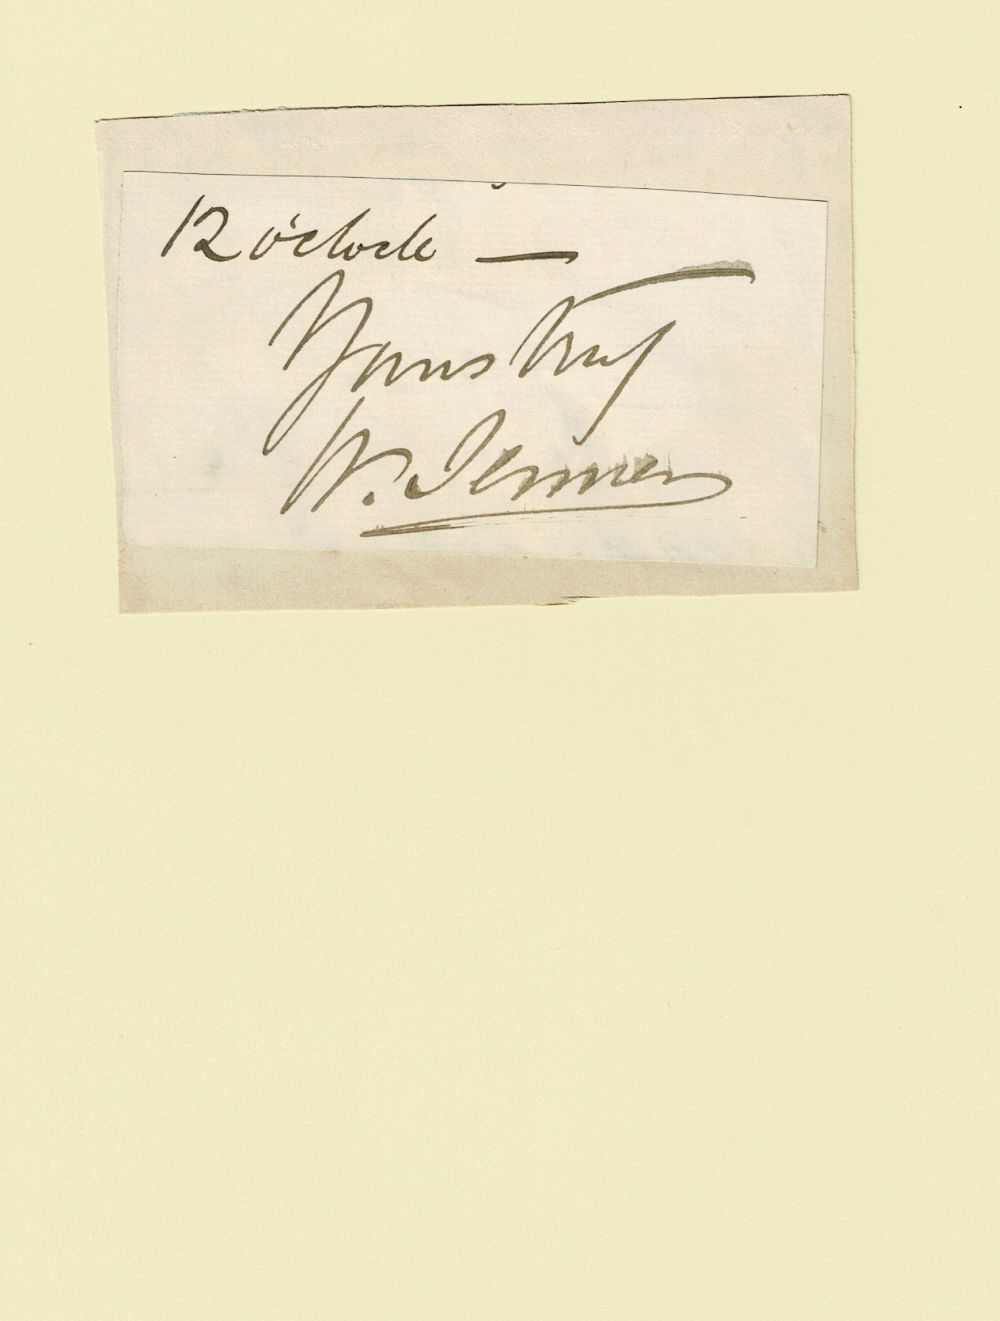 12 o'clock —
Yours truly
W. Jenner